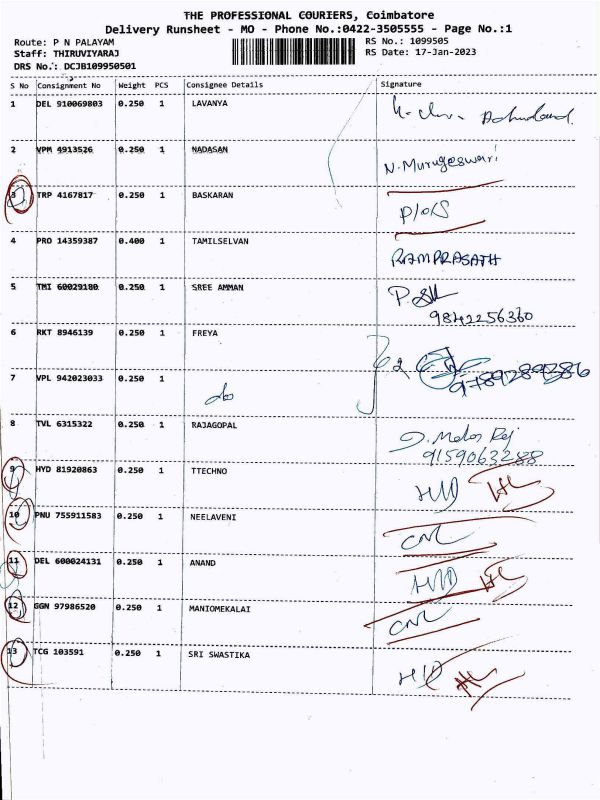 THE PROFESSIONAL COURIERS, Coimbatore
Delivery Runsheet - MO - Phone No.:0422-3505555 - Page No.:1
Route: P N PALAYAM
RS No.: 1099505
Staff: THIRUVIYARAJ
RS Date: 17-Jan-2023
DRS No.: DCJB109950501
S No Consignment No Weight PCS Consignee Details Signature
1 DEL 910069803 0.250 1 LAVANYA
2 VPM 4913526 0.250 1 NADASAN N. Murugeswari
3 TRP 4167817 0.250 1 BASKARAN P/O/S
4 PRO 14359387 0.400 1 TAMILSELVAN RAMPRASATH
5 TMI 60029180 0.250 1 SREE AMMAN
9842256360
6 RKT 8946139 0.250 1 FREYA
9789289286
7 VPL 942023033 0.250 1 do
8 TVL 6315322 0.250 1 RAJAGOPAL
9159063288
9 HYD 81920863 0.250 1 TTECHNO
10 PNU 755911583 0.250 1 NEELAVENI
11 DEL 600024131 0.250 1 ANAND
12 GGN 97986520 0.250 1 MANIOMEKALAI
13 TCG 103591 0.250 1 SRI SWASTIKA